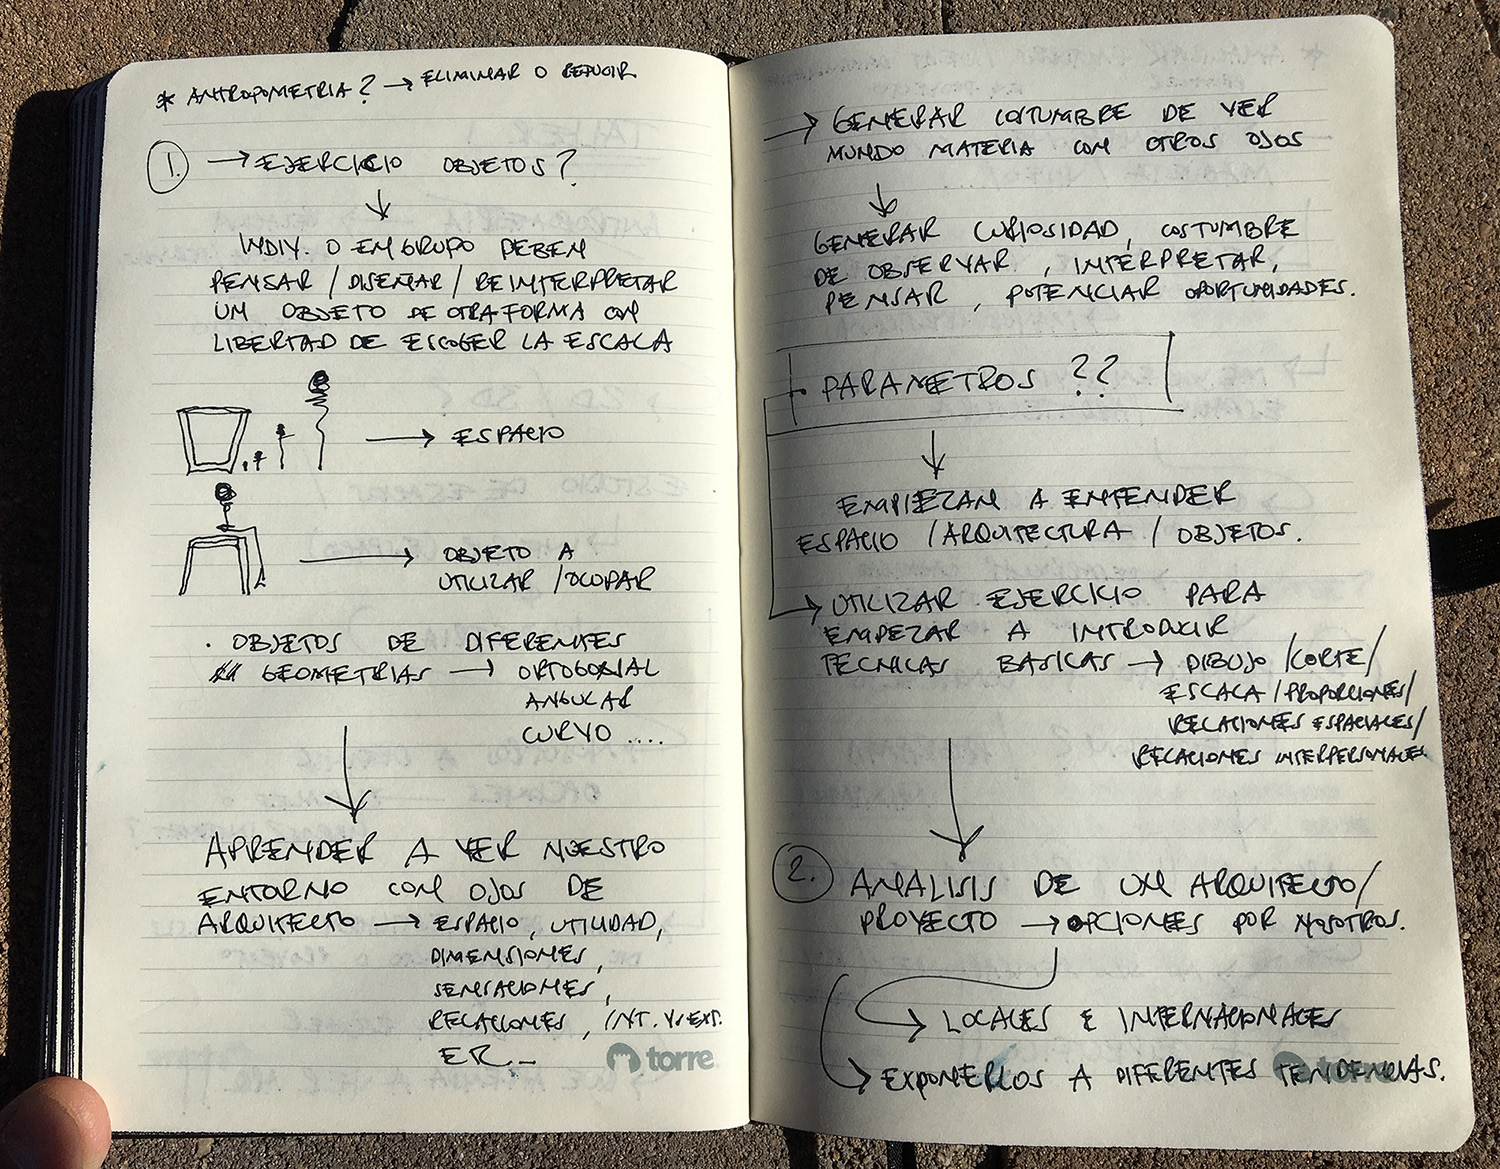 * ANTROPOMETRIA? → ELIMINAR O REDUCIR
1. → EJERCICIO OBJETOS?
↓
INDIV. O EN GRUPO DEBEN
PENSAR / DISEÑAR / REINTERPRETAR
UN OBJETO DE OTRA FORMA CON
LIBERTAD DE ESCOGER LA ESCALA
→ ESPACIO
→ OBJETO A
UTILIZAR / OCUPAR
· OBJETOS DE DIFERENTES
GEOMETRIAS → ORTOGONAL
ANGULAR
CURVO ....
↓
APRENDER A VER NUESTRO
ENTORNO CON OJOS DE
ARQUITECTO → ESPACIO, UTILIDAD,
DIMENSIONES,
SENSACIONES,
RELACIONES, INT. VS EXT.
torre
→ GENERAR COSTUMBRE DE VER
MUNDO MATERIA CON OTROS OJOS
↓
GENERAR CURIOSIDAD, COSTUMBRE
DE OBSERVAR, INTERPRETAR,
PENSAR, POTENCIAR OPORTUNIDADES.
PARAMETROS ??
↓
EMPIEZAN A ENTENDER
ESPACIO / ARQUITECTURA / OBJETOS.
→ UTILIZAR EJERCICIO PARA
EMPEZAR A INTRODUCIR
TECNICAS BASICAS → DIBUJO / CORTE /
ESCALA / PROPORCIONES /
RELACIONES ESPACIALES /
RELACIONES INTERPERSONALES
↓
2. ANALISIS DE UN ARQUITECTO /
PROYECTO → OPCIONES POR NOSOTROS.
→ LOCALES E INTERNACIONALES
→ EXPONERLOS A DIFERENTES TENDENCIAS.
torre